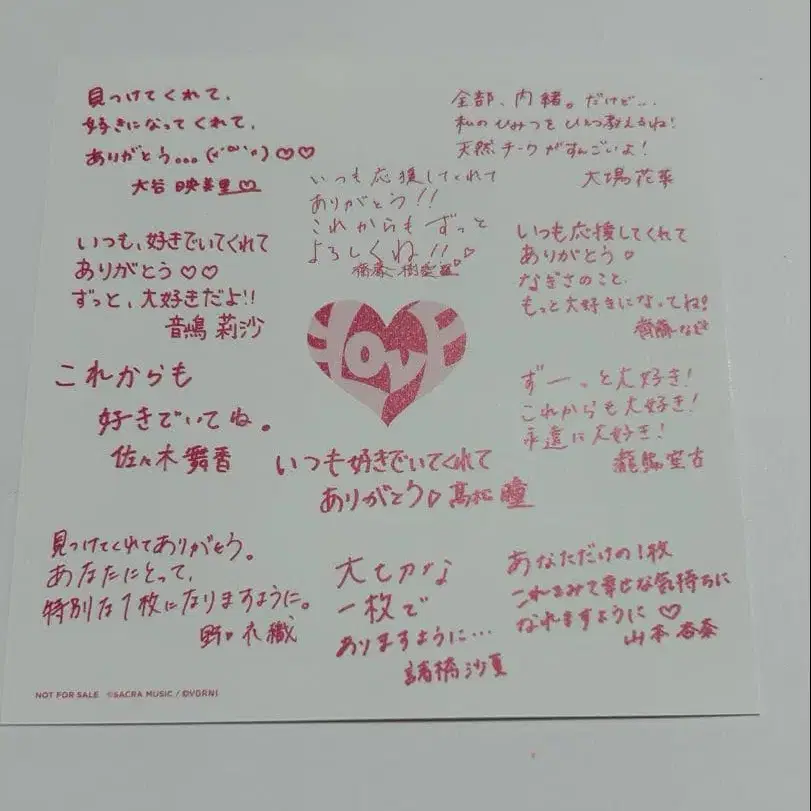 見つけてくれて、
好きになってくれて、
ありがとう。。。(*´꒳`*)♡♡
大谷 映美里♡
全部、内緒。だけど...
私のひみつをひとつ教えるね!
天然チークがすんごいよ!
大場花菜
いつも応援してくれて
ありがとう!!
これからもずっと
よろしくね!!♡
齋藤 樹愛羅
いつも、好きでいてくれて
ありがとう♡♡
ずっと、大好きだよ!!
音嶋 莉沙
いつも応援してくれて
ありがとう♡
なぎさのこと、
もっと大好きになってね!
齊藤なぎさ
LOVE
これからも
好きでいてね。
佐々木舞香
ずーっと大好き!
これからも大好き!
永遠に大好き!
瀧脇笙古
いつも好きでいてくれて
ありがとう♡髙松 瞳
見つけてくれてありがとう。
あなたにとって、
特別な1枚になりますように。
野口衣織
大切な
一枚で
ありますように...
諸橋沙夏
あなただけの1枚
これをみて幸せな気持ちに
なれますように♡
山本杏奈
NOT FOR SALE ©SACRA MUSIC / ©YGRNI